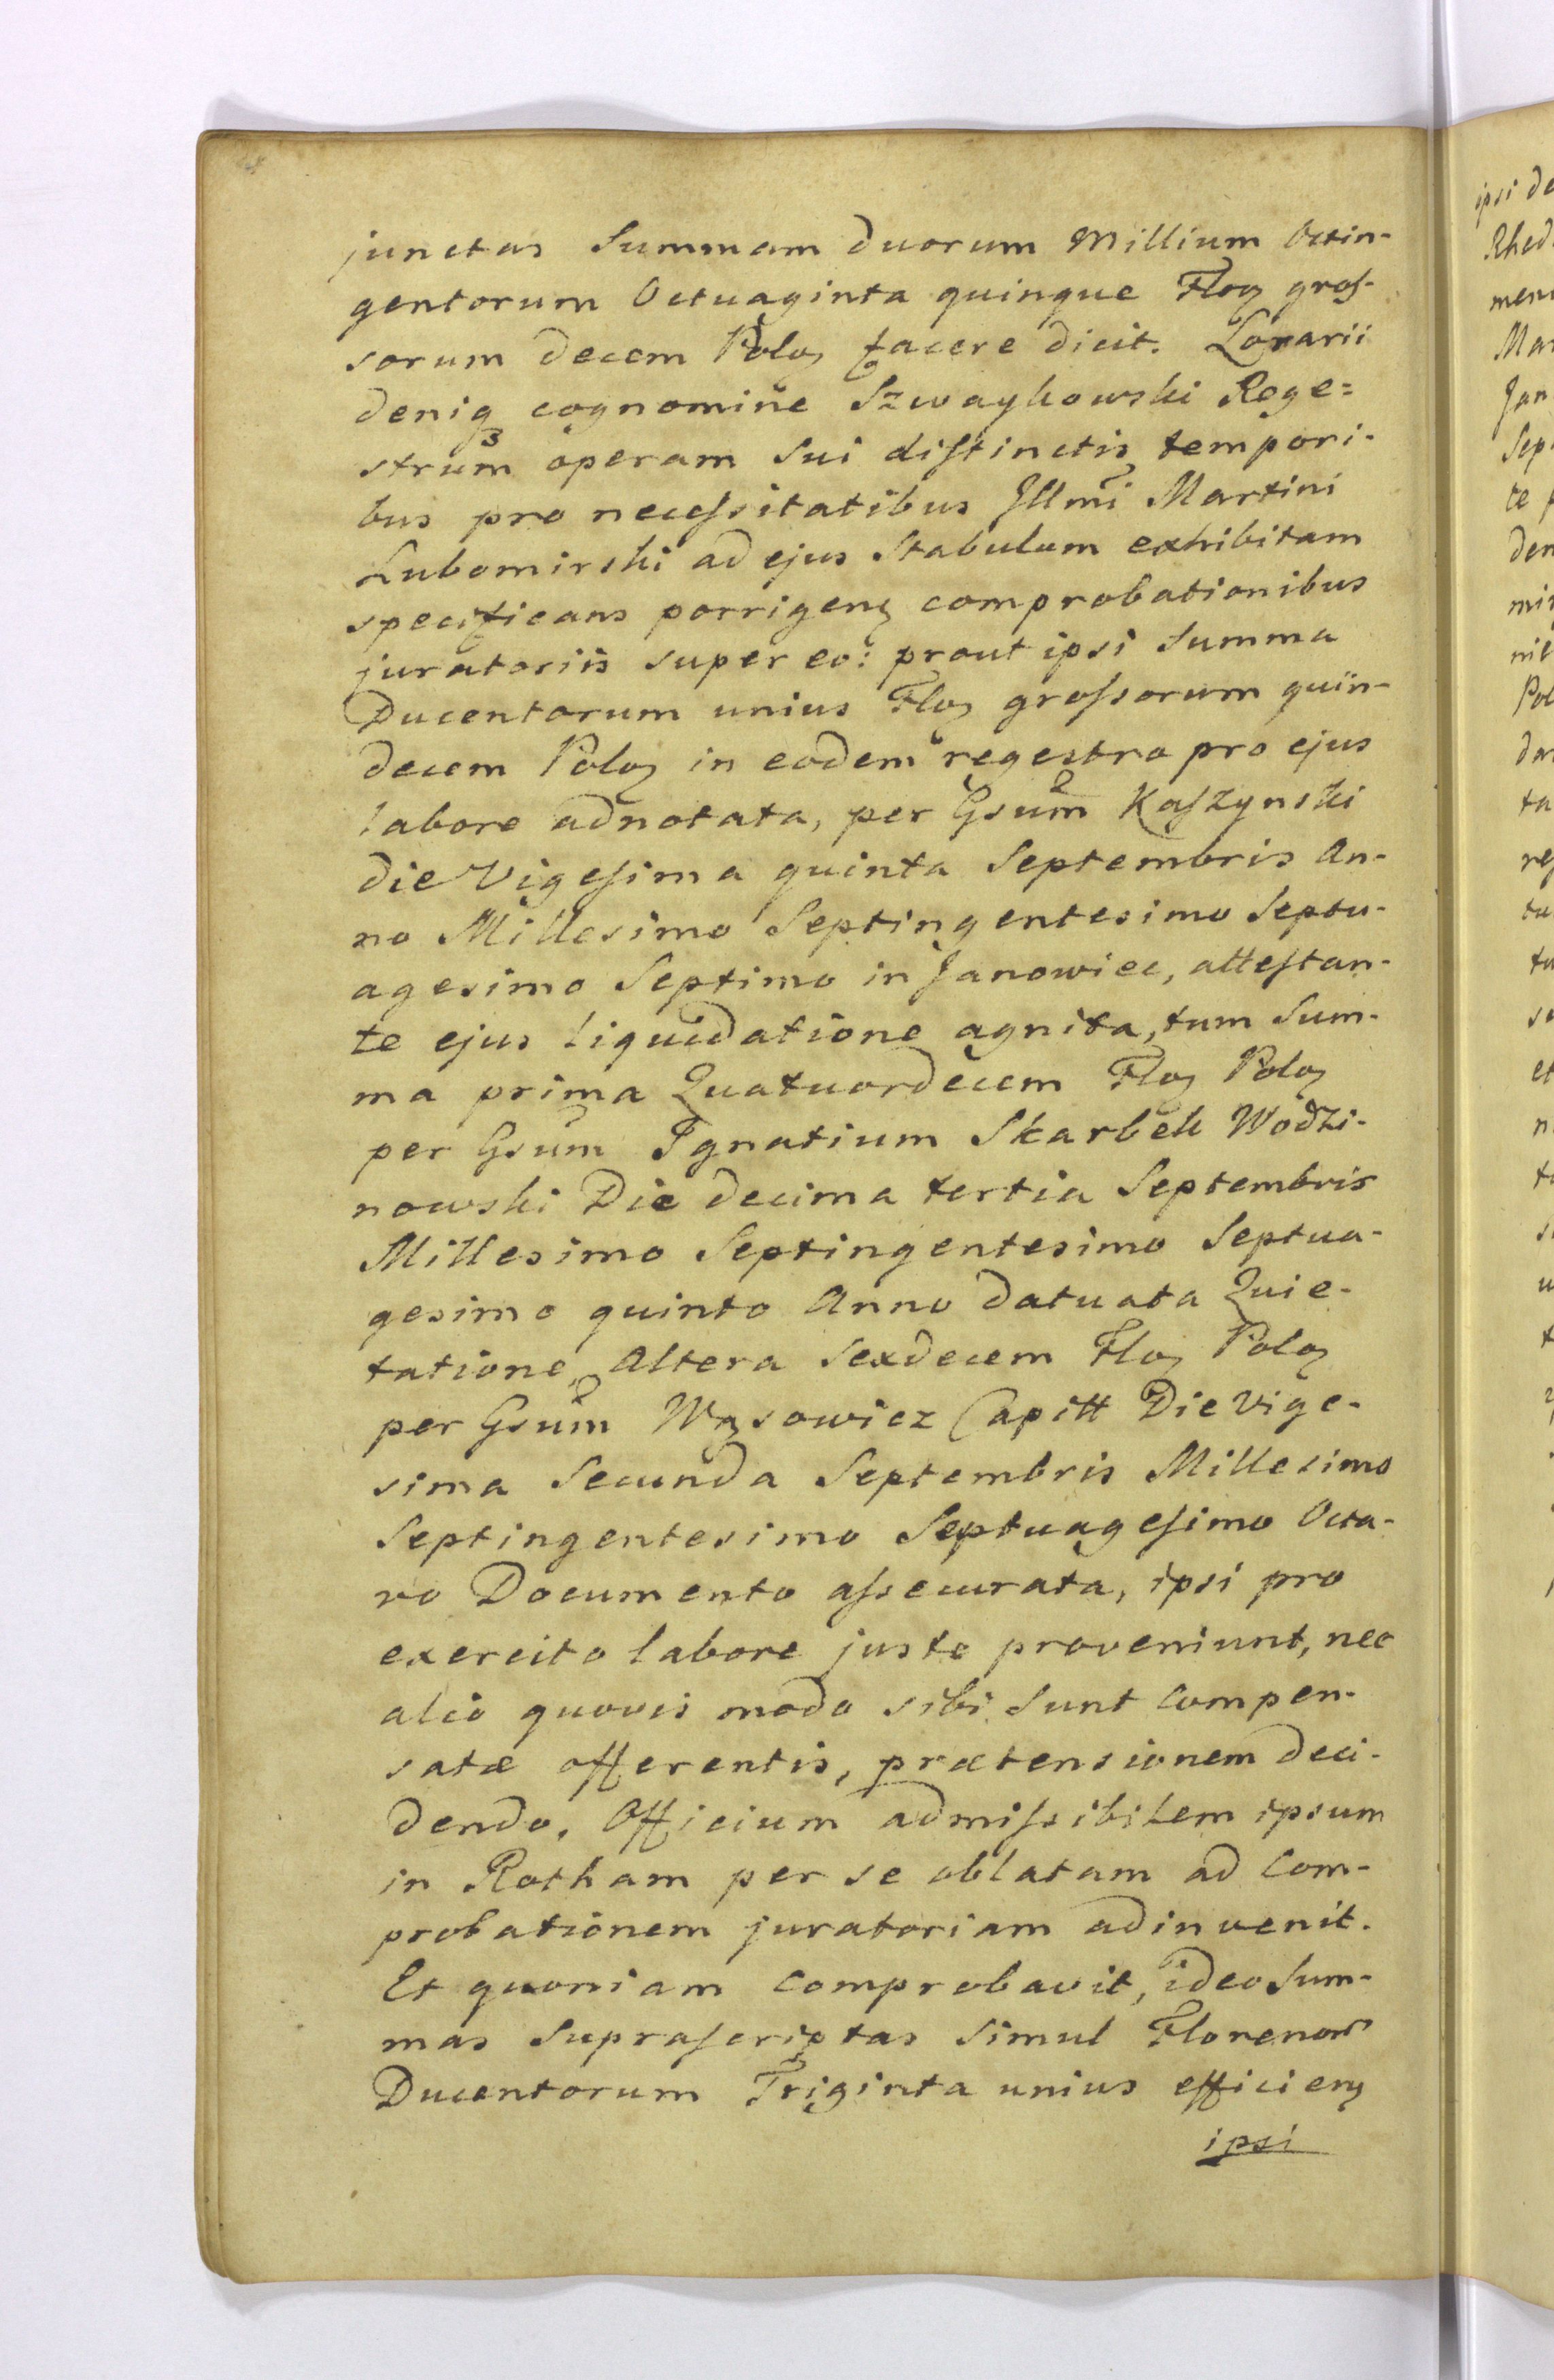 junctas Summam duorum Millium Octin-
gentorum Octuaginta quinque Floꝝ gros-
sorum decem Poloꝝ facere dicit. Lorarii
deniqꝫ cognomine Szwaykowski Rege=
strum operam sui distinctis tempori-
bus pro necessitatibus Illmi Martini
Lubomirski ad ejus Stabulum exhibitam
specificans porrigenꝫ comprobationibus
juratoriis super eo: prout ipsi Summa
Ducentorum unius Floꝝ grossorum quin-
decem Poloꝝ in eodem regestro pro ejus
labore adnotata, per Gsum Kaszynski
die Vigesima quinta Septembris An-
no Millesimo Septingentesimo Septu-
agesimo Septimo in Janowiec, attestan-
te ejus liquidatione agnita, tum Sum-
ma prima Quatuordecem Floꝝ Poloꝝ
per Gsum Ignatium Skarbek Wodzi-
nowski Die decima tertia Septembris
Millesimo Septingentesimo Septua-
gesimo quinto Anno datuata Quie-
tatione, Altera Sexdecem Floꝝ Poloꝝ
per Gsum Wąsowicz Capitt Die Vige-
sima Secunda Septembris Millesimo
Septingentesimo Septuagesimo Octa-
vo Documento assecurata, ipsi pro
exercito labore juste proveniunt, nec
alio quovis modo sibi sunt compen-
satæ offerentis, prætensionem deci-
dendo, Officium admissibilem ipsum
in Rotham per se oblatam ad Com-
probationem juratoriam adinvenit.
Et quoniam comprobavit, ideo Sum-
mas suprascriptas simul Florenor
Ducentorum Triginta unius efficienꝫ
ipsi